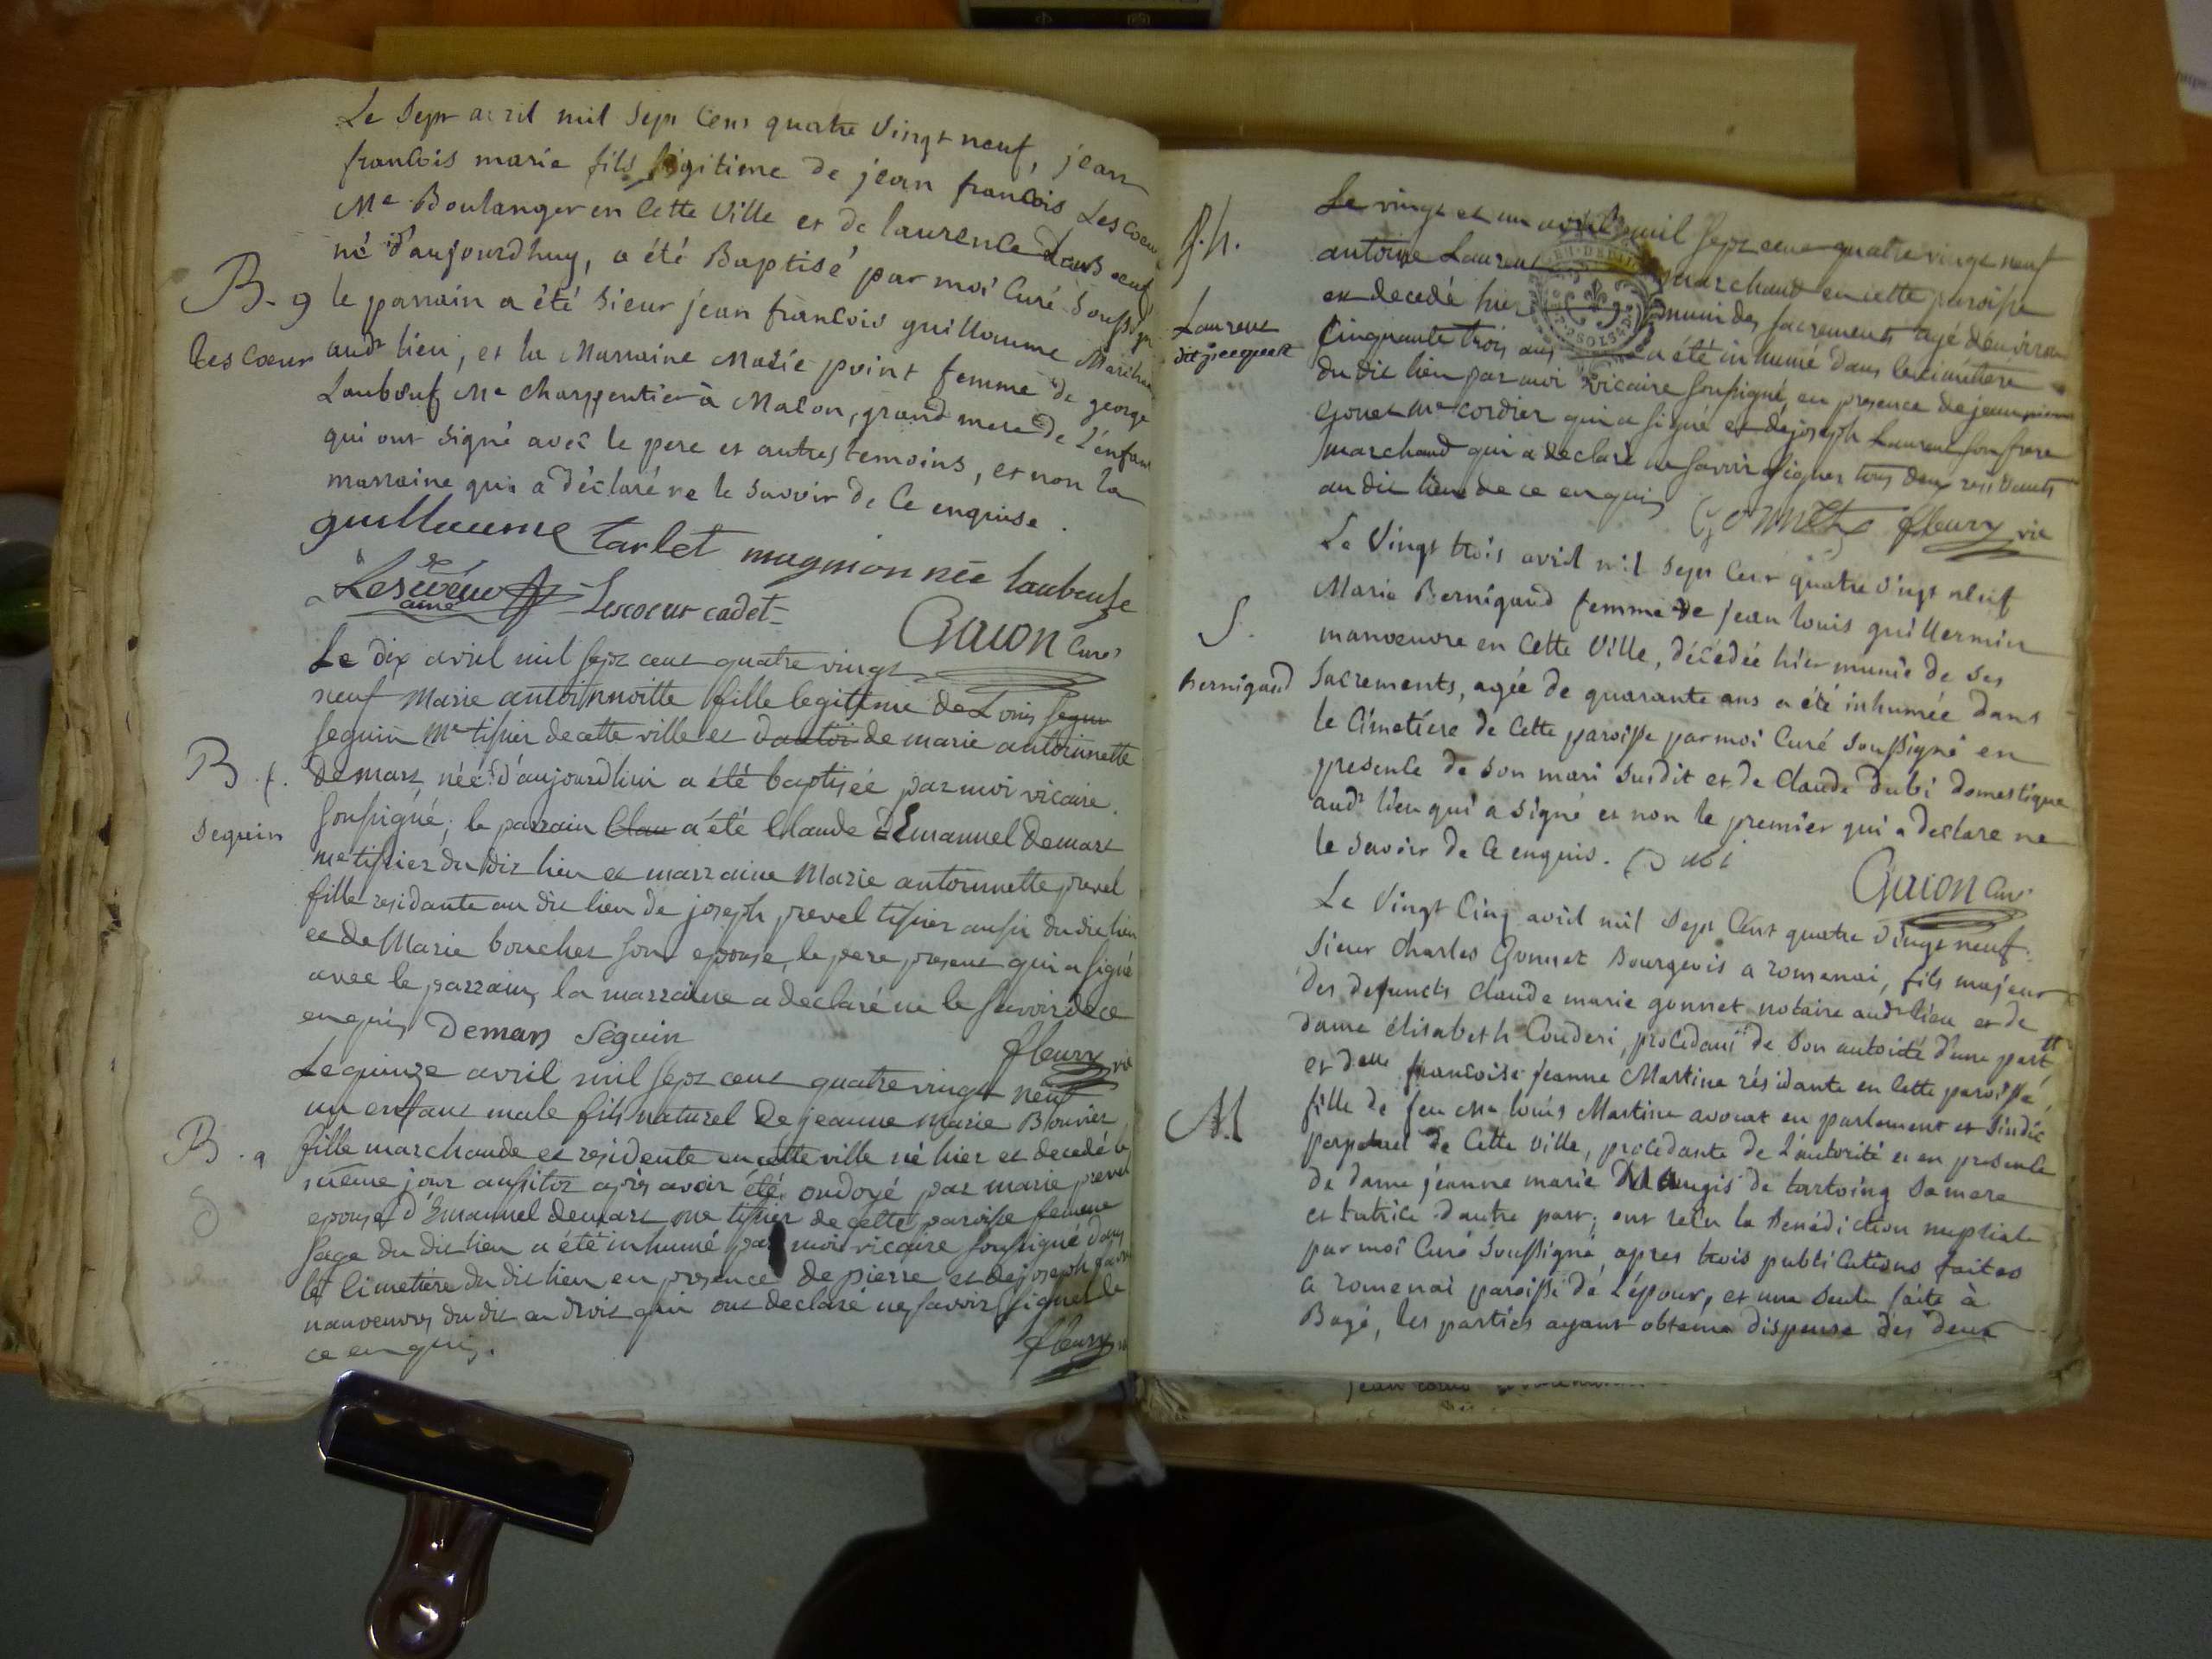 Le Sept avril mil Sept Cens quatre Vingt neuf, jean
francois marie fils légitime de jean francois Lescoeur
Me Boulanger en Cette Ville et de laurence
né d'aujourdhuy, a été Baptisé par moi Curé Soussigné
B. g le parrain a été Sieur jean francois guillaume Marchand
Lescoeur audt lieu, et la Marraine Marie point femme de george
Laubeuf Me charppentier à Macon, grand mere de L'enfant
qui ont Signé avec le pere et autres temoins, et non la
marraine qui a déclaré ne le Savoir de Ce enquise.
guillaume tarlet mugnion née laubeufe
Lescoeur ainé Lescoeur cadet
Guion Curé
Le dix avril mil sept cent quatre vingt
neuf Marie antoinnoitte fille legitime de Louis seguin
seguin Me tissier de cette ville et dantoi de marie antoinnette
B. f. demars née d'aujourdhui a été baptisée par moi vicaire
Seguin soussigné; le parrain Clau a été Claude Emanuel demars
me tissier du dit lieu et marraine Marie antoinnette prevel
fille residante au dit lieu de joseph prevel tissier aussi du dit lieu
et de Marie boucher son epouse, le pere present qui a signé
avec le parrain, la marraine a declaré ne le savoir de ce
enquis Demars Séguin
fleury vic
Le quinze avril mil sept cent quatre vingt neuf
un enfant male fils naturel de jeanne Marie Blouvier
B. g fille marchande et residente en cette ville né hier et decedé le
même jour aussitot après avoir été ondoyé par marie prevel
epouse d'Emanuel demars me tissier de cette paroisse femme
sage du dit lieu a été inhumé par moi vicaire soussigné dans
le Cimetière du dit lieu en presence de pierre et de joseph
manoeuvres du dit endroit qui ont declaré ne savoir signer de
ce enquis.
fleury
Le vingt et un avril mil sept cent quatre vingt neuf
S.h. antoine Laurent marchand en cette paroisse
est decedé hier muni des sacrements agé d'environ
Laurent cinquante trois ans a été inhumé dans le cimetiere
dit jacquet du dit lieu par moi vicaire soussigné en presence de jean pierre
gonet me cordier qui a signé et de joseph Laurent son frere
marchand qui a declaré ne savoir signer tous deux residents
au dit lieu de ce enquis Gonnet fleury vic
Le Vingt trois avril mil Sept Cent quatre Vingt neuf
Marie Bernigaud femme de jean louis guillermin
S. manoeuvre en Cette Ville, décédée hier munie de Ses
Bernigaud Sacrements, agée de quarante ans a été inhumée dans
le Cimetiere de Cette paroisse par moi Curé Soussigné en
presence de Son mari Susdit et de Claude Dubi domestique
audt lieu qui a Signé et non le premier qui a declare ne
le Savoir de Ce enquis. Dubi
Guion Curé
Le Vingt Cinq avril mil Sept Cent quatre Vingt neuf.
Sieur Charles Gonnet Bourgeois a romenai, fils majeur
des defuncts claude marie gonnet notaire audt lieu et de
dame élisabeth Couderi, procedant de Son autorité d'une part
et delle francoise jeanne Martine résidante en Cette paroisse,
M fille de feu Me louis Martine avocat en parlement et Sindic
perpetuel de Cette Ville, procedante de L'autorité et en presence
de dame jeanne marie Maugis de tartoing Sa mere
et tutrice d'autre part; ont recu la Bénédiction nuptiale
par moi Curé Soussigné, apres trois publications faites
a romenai paroisse de L'époux, et une Seule faite à
Bagé, les parties ayant obtenu dispense des deux